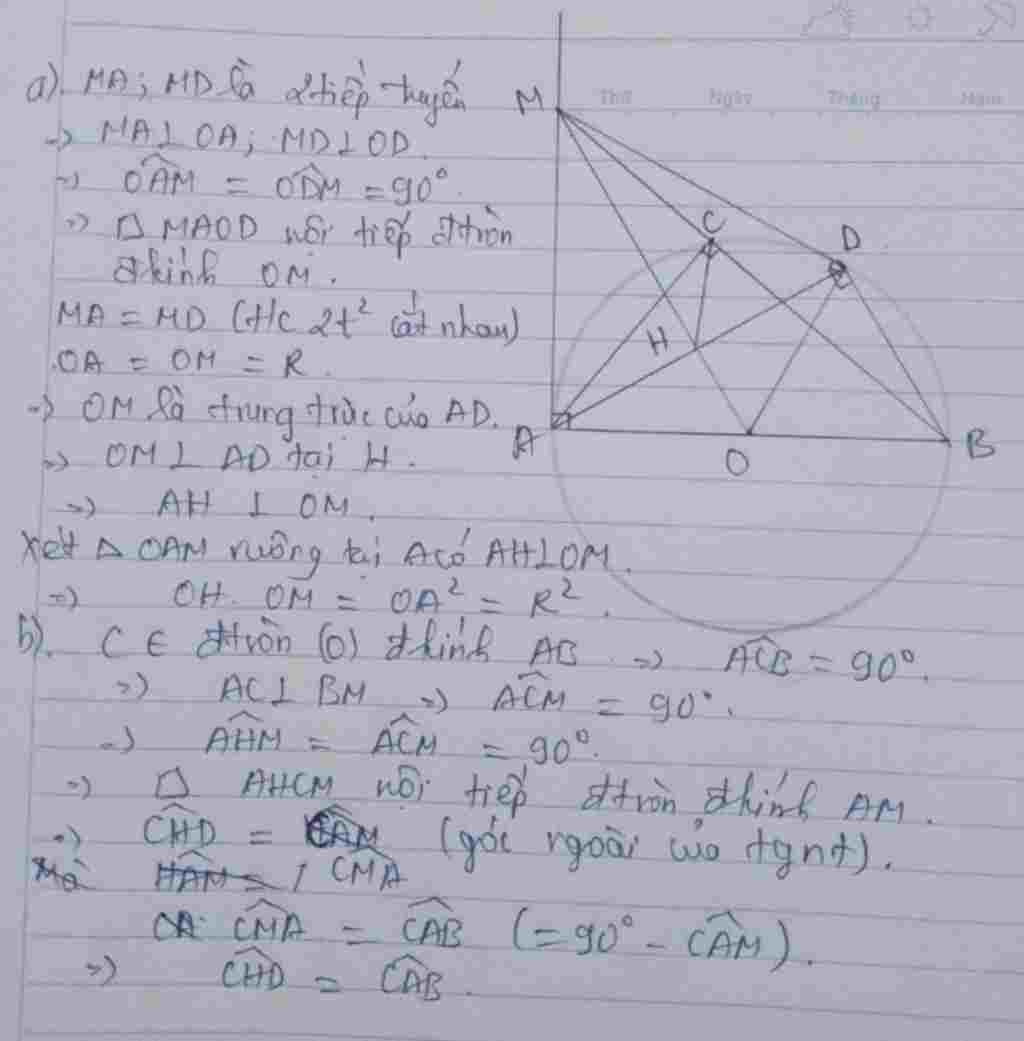 Thứ Ngày Tháng Năm
a). MA; MD là 2 tiếp tuyến
=> MA⊥OA; MD⊥OD.
=> OÂM = OD̂M = 90°.
=> □ MAOD nội tiếp đtròn
đkính OM.
MA = MD (t/c 2t² cắt nhau)
OA = OM = R.
=> OM là trung trực của AD.
=> OM ⊥ AD tại H.
=> AH ⊥ OM.
Xét △ OAM vuông tại A có AH⊥OM.
=> OH. OM = OA² = R².
b). C ∈ đtròn (O) đkính AB => AĈB = 90°.
=> AC⊥ BM => AĈM = 90°.
=> AĤM = AĈM = 90°.
=> □ AHCM nội tiếp đtròn đkính AM.
=> CĤD = CÂM (góc ngoài của tgnt).
Mà HÂM = / CM̂A
CA: CM̂A = CÂB (= 90° - CÂM).
=> CĤD = CÂB.
M
C
D
H
A
O
B